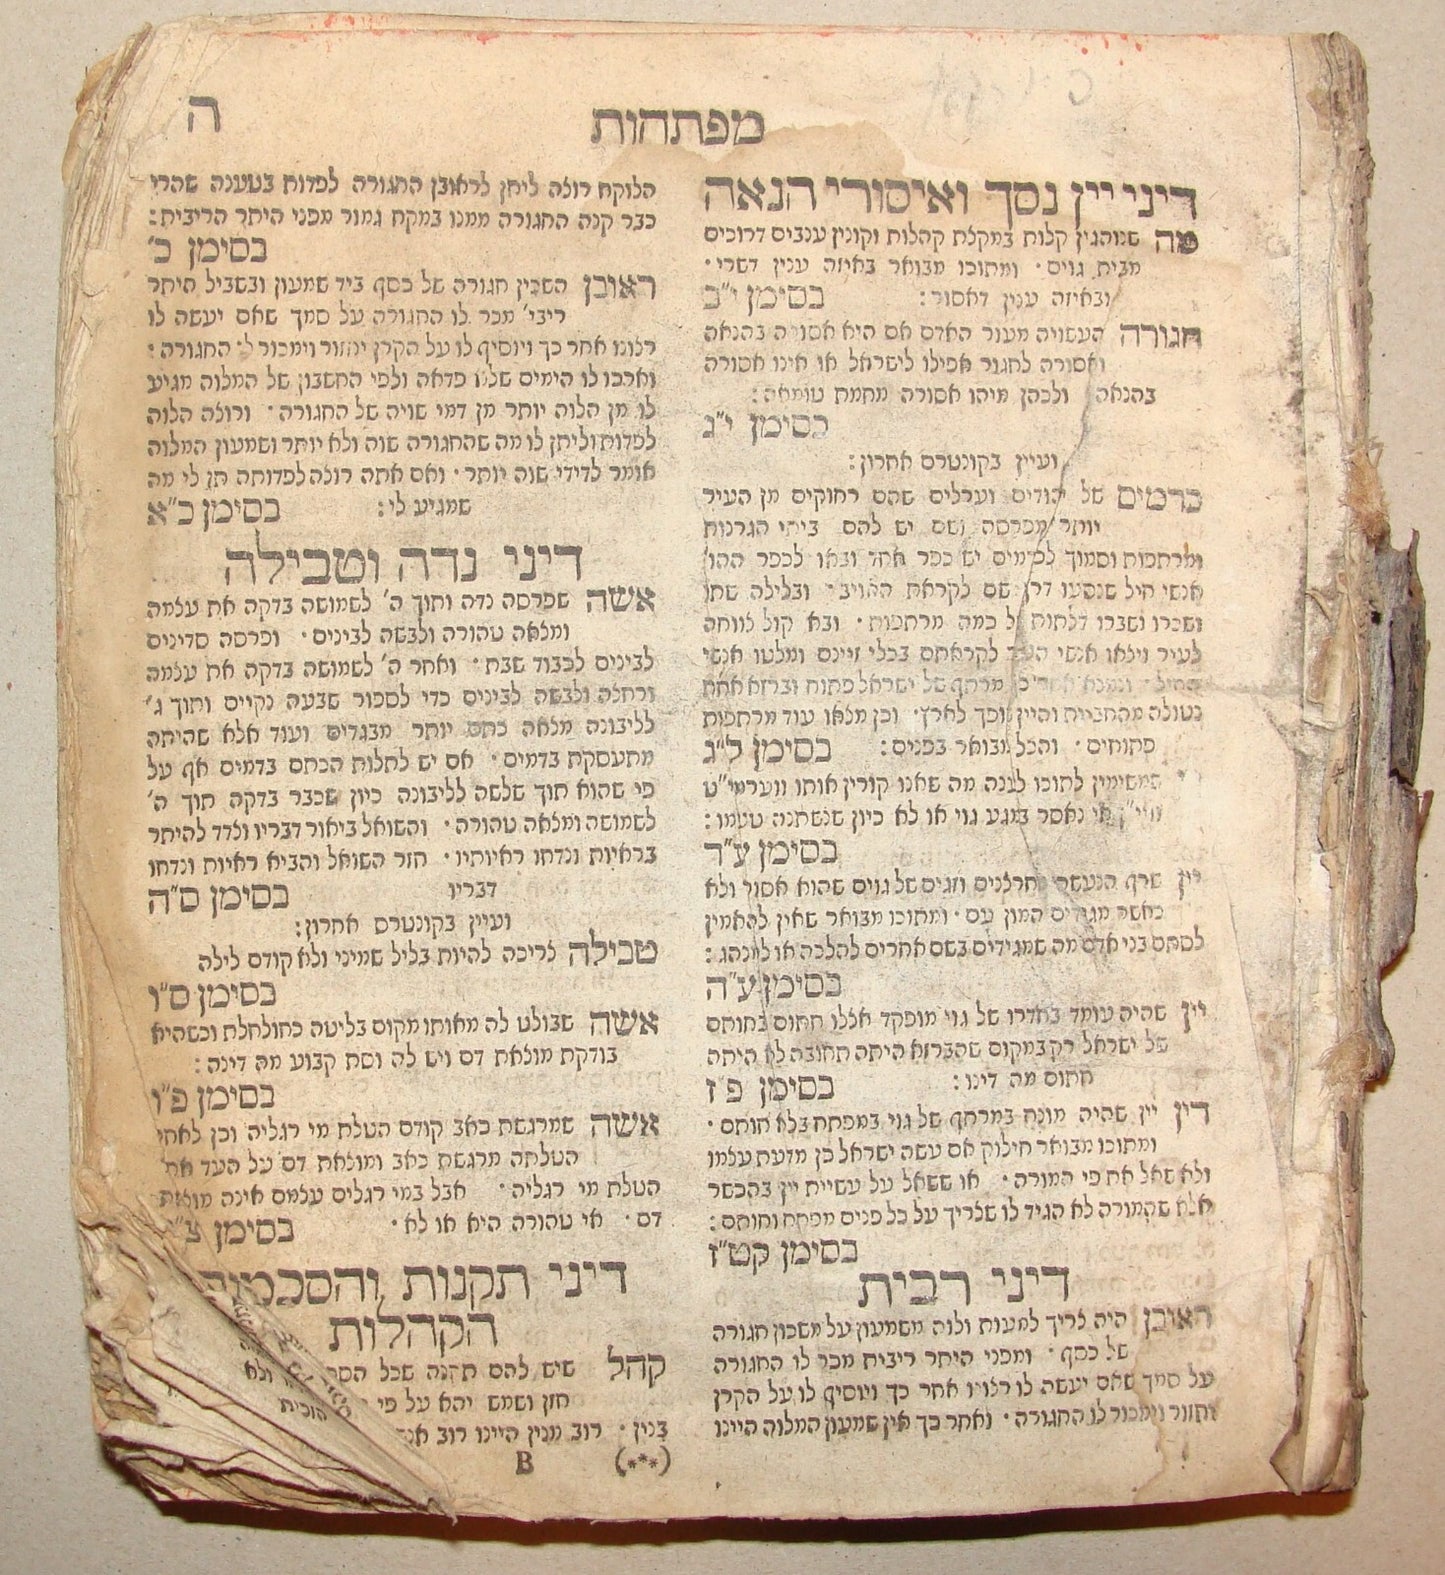 מפתחות
ה
דיני יין נסך ואיסורי הנאה
מה שמוהגין קלות במקצת קהלות וקונין ענבים דרוכים
מבית גוים· ומתוכו מבואר באיזה ענין דשרי·
ובאיזה ענין דאסור: בסימן י״ב
חגורה העשויה מעור האדם אם היא אסורה בהנאה
ואסורה לחגור אפילו לישראל או אינו אסורה
בהנאה ולכהן מיהו אסורה מחמת טומאה:
בסימן י״ג
ועיין בקונטרס אחרון:
כרמים של יהודים וערלים שהם רחוקים מן העיר
יותר מפרסה ושם יש להם בתי הגרנות
ומרתפות וסמוך לכרמים יש כפר אחד ובאו לכפר ההו׳
אנשי חיל שנסעו דרך שם לקראת האויב· ובלילה שתו
ושכרו ושברו דלתות של כמה מרתפות· ובא קול צווחה
לעיר ויצאו אנשי העיר לקראתם בכלי זיינם ומלטו אנשי
החיל· ונמצא אחר כך מרתף של ישראל פתוח וברזא אחת
נטולה מהחביות והיין נשפך לארץ· וכן מצאו עוד מרתפות
פתוחים· והכל מבואר בפנים: בסימן ל״ג
שמשימין לתוכו לענה מה שאנו קורין אותו ווערמי״ט
וויי״ן אי נאסר במגע גוי או לא כיון שנשתנה טעמו:
בסימן ע״ד
יין שרף הנעשה מחרצנים וזגים של גוים שהוא אסור ולא
כאשר מגידים המון עם· ומתוכו מבואר שאין להאמין
לסתם בני אדם מה שמגידים בשם אחרים להלכה או למנהג:
בסימן ע״ה
יין שהיה עומד בחדרו של גוי מופקד אצלו חתום בחותם
של ישראל רק במקום שהברזא היתה תחובה לא היתה
חתום מה דינו: בסימן פ״ז
דין יין שהיה מונח במרתף של גוי במפתח בלא חותם·
ומתוכו מבואר חילוק אם עשה ישראל כן מדעת עצמו
ולא שאל את פי המורה· או ששאל על עשיית יין בהכשר
אלא שהמורה לא הגיד לו שצריך על כל פנים מפתח וחותם:
בסימן קט״ז
דיני רבית
ראובן היה צריך למעות ולוה משמעון על משכון חגורה
של כסף· ומפני היתר ריבית מכר לו החגורה
על סמך שאם יעשה לו רצונו אחר כך ויוסיף לו על הקרן
יחזור וימכור לו החגורה· ואחר כך אין שמעון המלוה היינו
הלוקח רוצה ליתן לראובן החגורה לפדות בטענה שהרי
כבר קנה החגורה ממנו במקח גמור מפני היתר הריבית:
בסימן כ׳
ראובן השכין חגורה של כסף ביד שמעון ובשביל היתר
ריבי׳ מכר לו החגורה על סמך שאם יעשה לו
רצונו אחר כך ויוסיף לו על הקרן יחזור וימכור לו החגורה·
וארכו לו הימים שלא פדאה ולפי החשבון של המלוה מגיע
לו מן הלוה יותר מן דמי שויה של החגורה· ורוצה הלוה
לפדות וליתן לו מה שהחגורה שוה ולא יותר ושמעון המלוה
אומר לדידי שוה יותר· ואם אתה רוצה לפדותה תן לי מה
שמגיע לי: בסימן כ״א
דיני נדה וטבילה
אשה שפרסה נדה ותוך ה׳ לשמושה בדקה את עצמה
ומצאה טהורה ולבשה לבינים· ופרסה סדינים
לבינים לכבוד שבת· ואחר ה׳ לשמושה בדקה את עצמה
ורחצה ולבשה לבינים כדי לספור שבעה נקיים ותוך ג׳
לליבונה מצאה כתם יותר מבגדים ועוד אלא שהיתה
מתעסקת בדמים· אם יש לתלות הכתם בדמים אף על
פי שהוא תוך שלשה לליבונה כיון שכבר בדקה תוך ה׳
לשמושה ומצאה טהורה· והשואל ביאור דבריו וצדד להיתר
בראיות ונדחו ראיותיו· חזר השואל והביא ראיות ונדחו
דבריו בסימן ס״ה
ועיין בקונטרס אחרון:
טבילה צריכה להיות בליל שמיני ולא קודם לילה
בסימן ס״ו
אשה שבולט לה מאותו מקום בליטה כחולחלת וכשהיא
בודקת מוצאת דם ויש לה וסת קבוע מה דינה:
בסימן פ״ו
אשה שמרגשת כאב קודם הטלת מי רגליה וכן לאחר
הטלתה מרגשת כאב ומוצאת דם על העד אחר
הטלת מי רגליה· אבל במי רגלים עצמם אינה מוצאת
דם· אי טהורה היא או לא· בסימן צ״
דיני תקנות והסכמות
הקהלות
קהל שיש להם תקנה שכל ולא
חזן ושמש יהא על פי הוכית
בנין· רוב מנין היינו רוב
(***) B